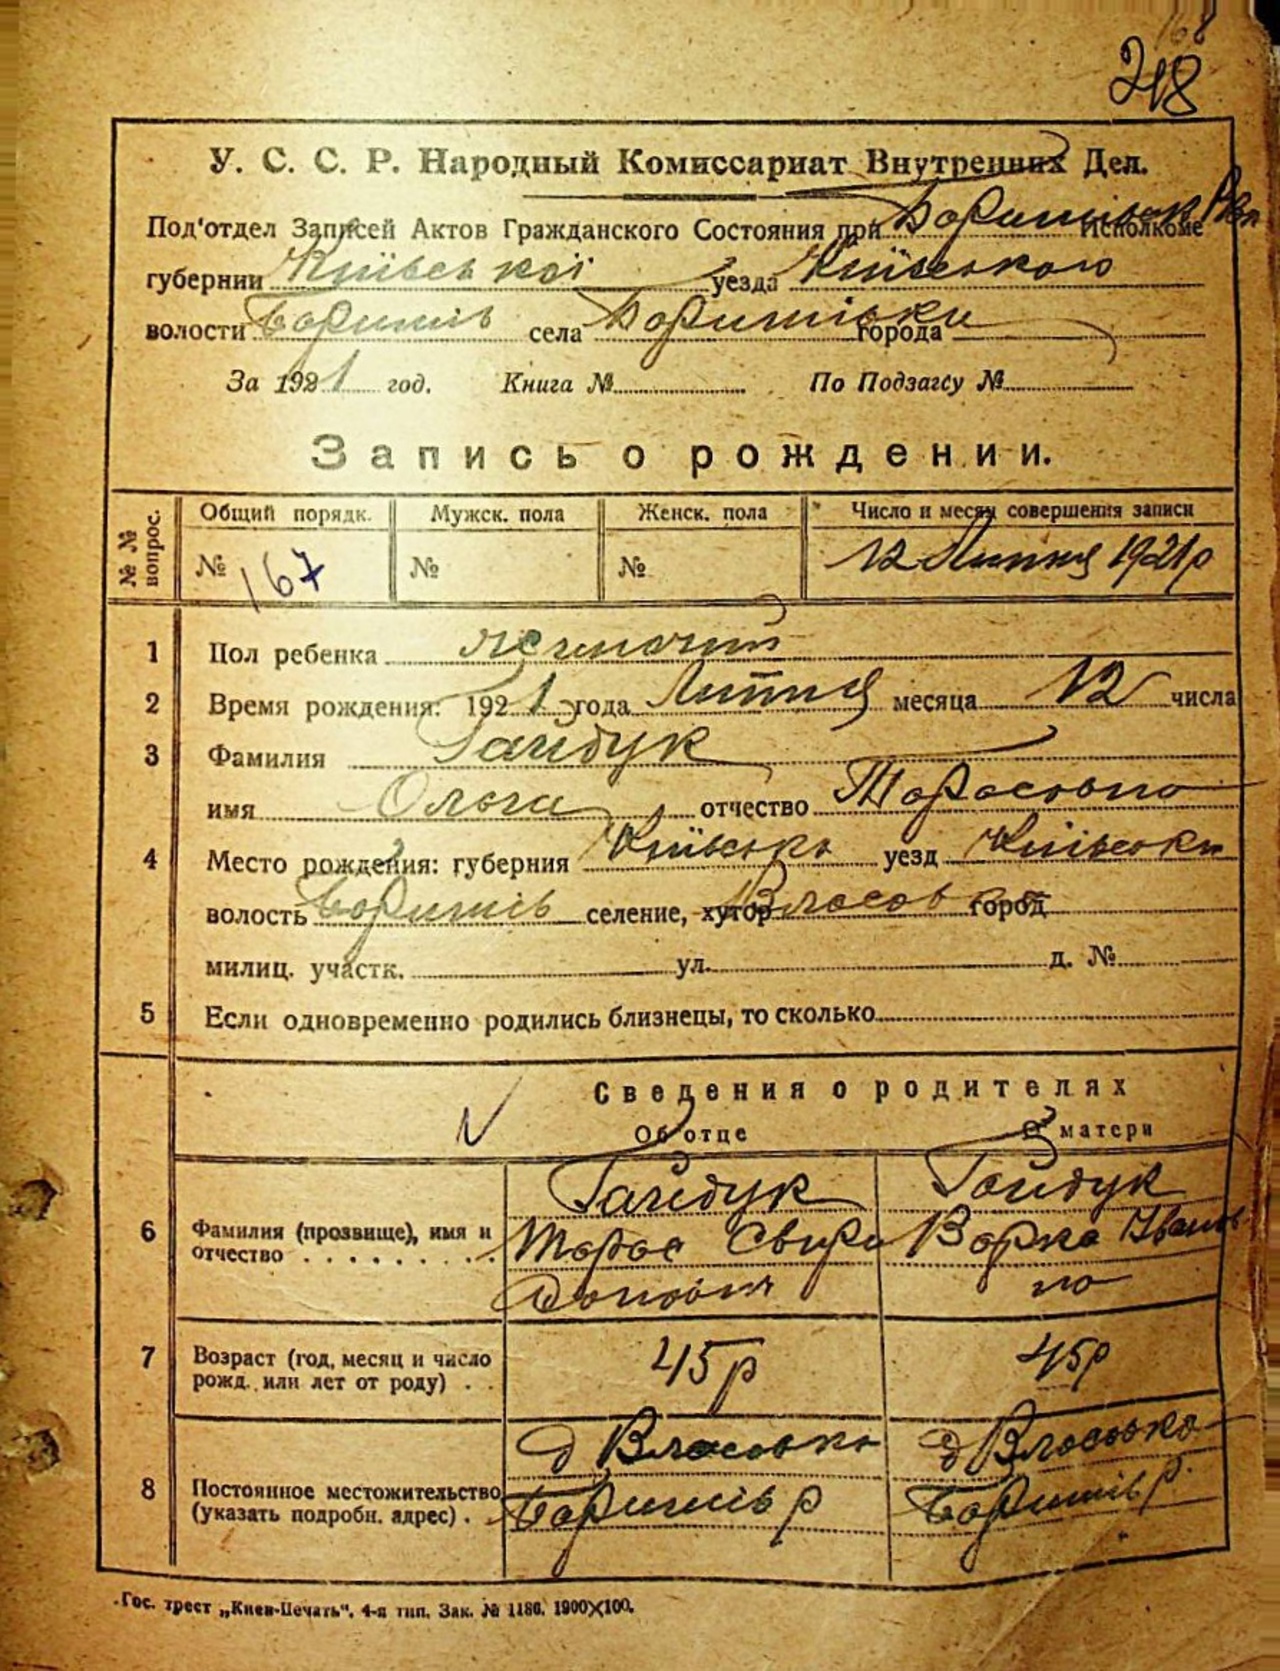 168
218
У. С. С. Р. Народный Комиссариат Внутренних Дел.
Под'отдел Записей Актов Гражданского Состояния при Исполкоме
губернии Київської уезда Київського
волости села города
За 1921 год. Книга № По Подзагсу №
Запись о рождении.
№ № вопрос. Общий порядк. Мужск. пола Женск. пола Число и месяц совершения записи
№ 167 № № 12 Липня 1921 р
1 Пол ребенка женочий
2 Время рождения: 1921 года Липня месяца 12 числа
3 Фамилия Гайдук
имя Ольга отчество Тарасовна
4 Место рождения: губерния Київська уезд Київськи
волость селение, хутор город
милиц. участк. ул. д. №
5 Если одновременно родились близнецы, то сколько
Сведения о родителях
Об отце О матери
6 Фамилия (прозвище), имя и отчество Гайдук Гайдук
Тарас Варка Іванов
на
7 Возраст (год, месяц и число рожд. или лет от роду) 45 р 45 р
8 Постоянное местожительство (указать подробн. адрес) д Власовка д Власовка
Гос. трест „Киев-Печать“. 4-я тип. Зак. № 1186. 1900×100.